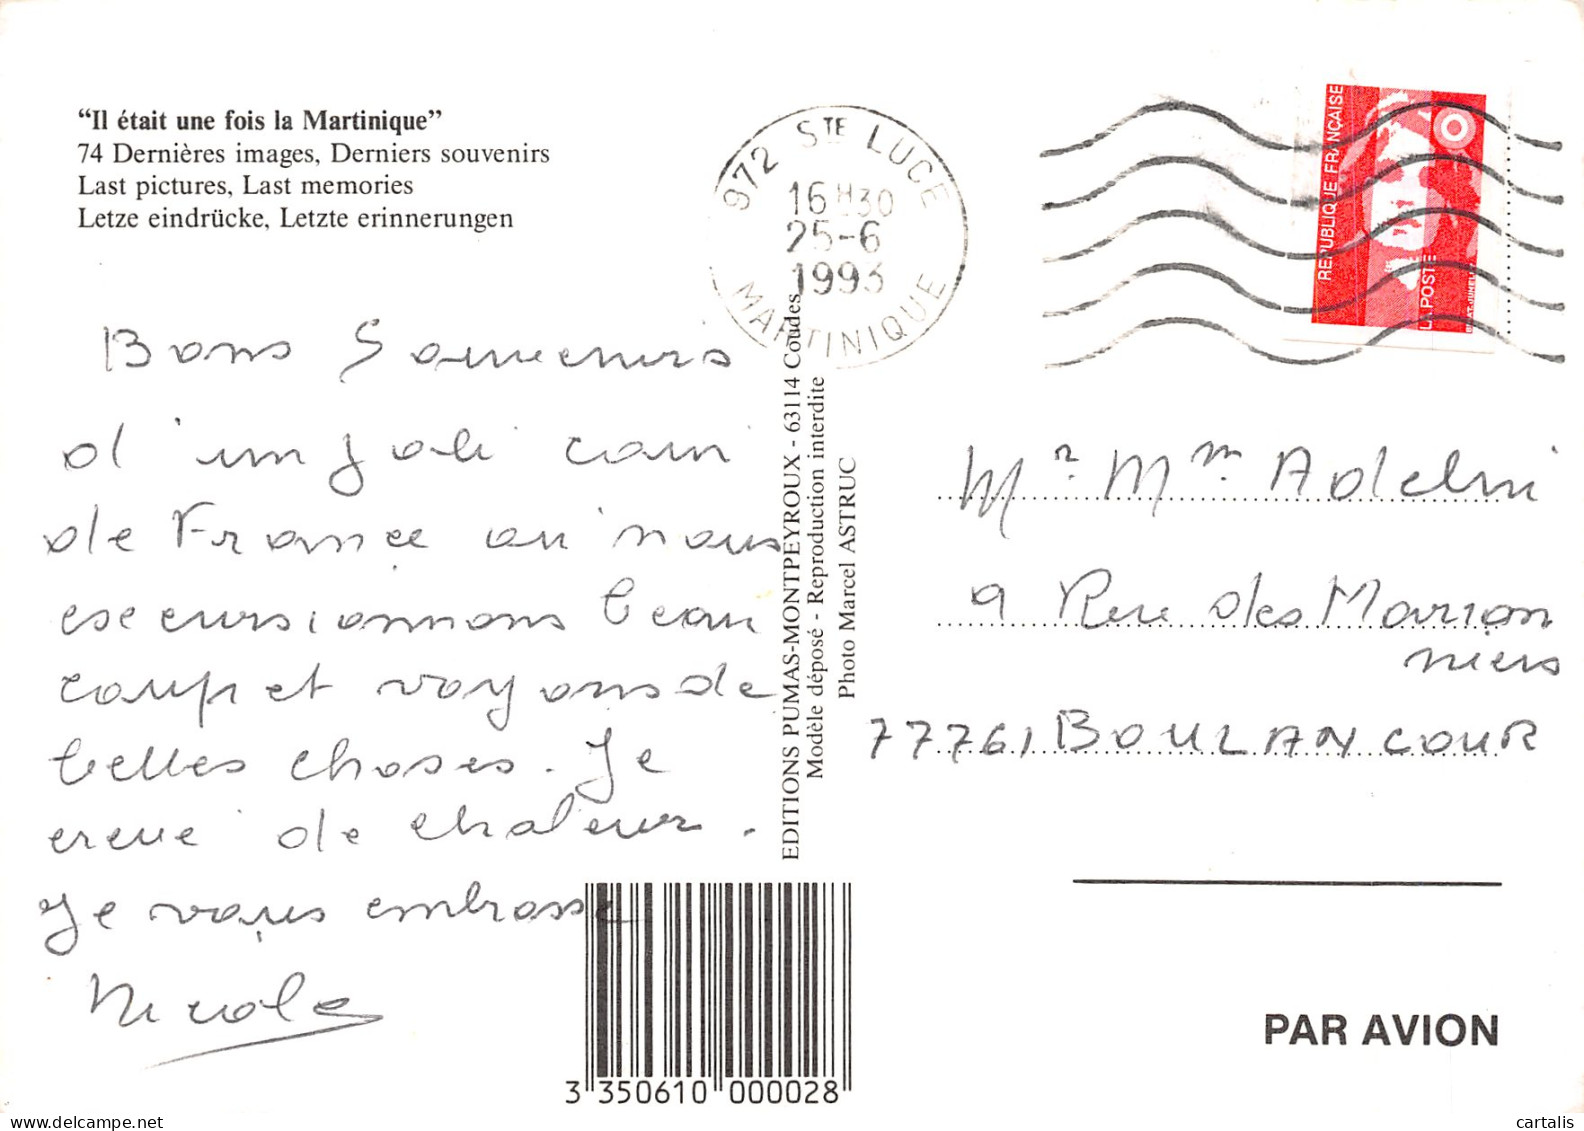 "Il était une fois la Martinique"
74 Dernières images, Derniers souvenirs
Last pictures, Last memories
Letze eindrücke, Letzte erinnerungen
972 STE LUCE
16H30
25-6
1993
MARTINIQUE
REPUBLIQUE FRANÇAISE
LA POSTE
Bons Souvenirs
d'un joli coin
de France où nous
escursionnons beau
coup et voyons de
belles choses. Je
creve de chaleur.
Je vous embrasse
Nicole
EDITIONS PUMAS-MONTPEYROUX - 63114 Coudes
Modèle déposé - Reproduction interdite
Photo Marcel ASTRUC
Mr Mm Adelini
9 Rue des Marron
niers
77761 BOULANCOUR
3 350610 000028
PAR AVION
delcampe.net
cartalis